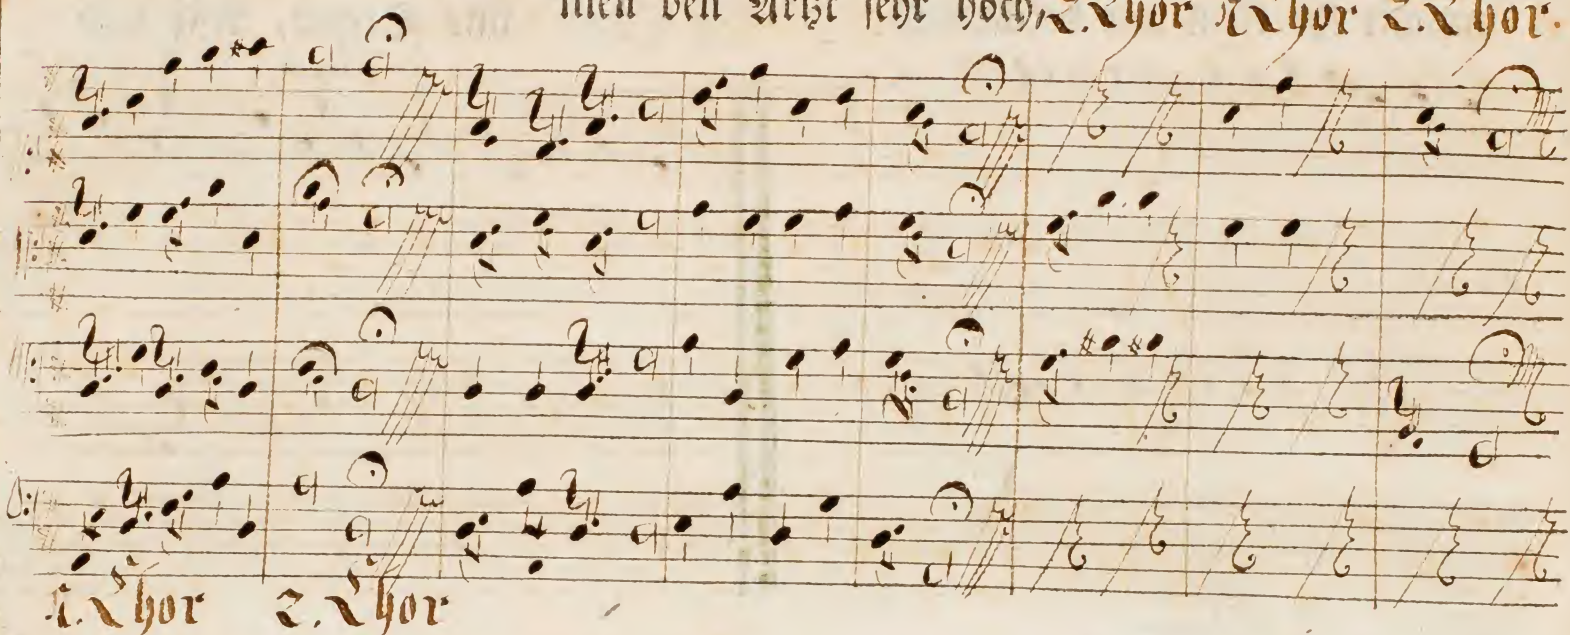 men den Artzt sehr hoch, 2. Chor 1. Chor 2. Chor.
1. Chor 2. Chor